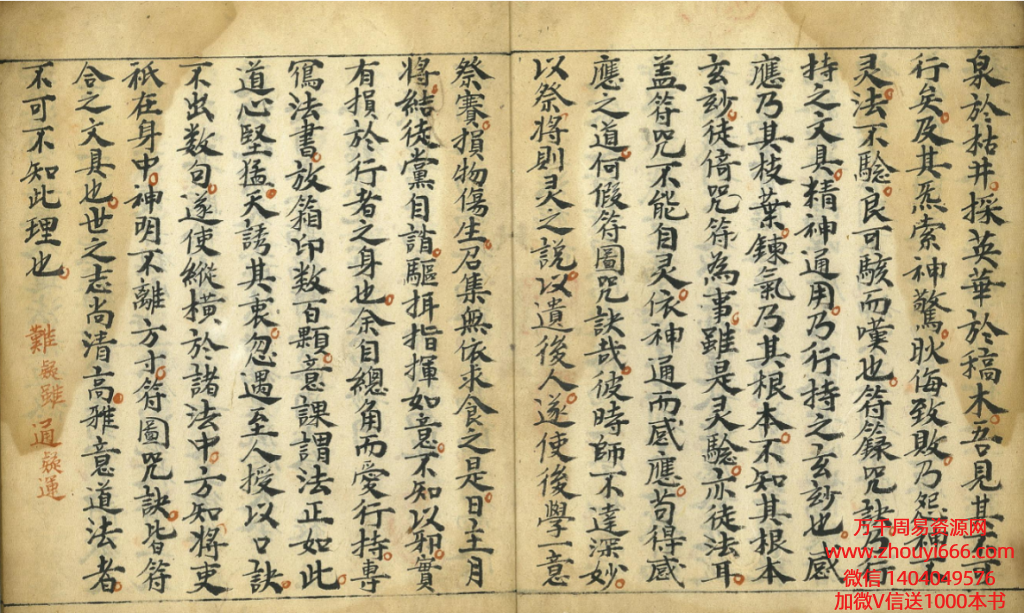 泉於枯井採英華於稿木吾見其不可
行矣及其索神驚耿侮致敗乃怨神不
灵法不驗良可駭而嘆也符籙咒訣乃行
持之文具精神通用乃行持之玄玅也感
應乃其枝葉鍊氣乃其根本不知其根本
玄玅徒倚咒符為事雖是灵驗亦徒法耳
盖符咒不能自灵依神通而感應苟得感
應之道何假符圖咒訣哉彼時師不達深妙
以祭将則灵之說以遺後人遂使後學一意
祭賽損物傷生召集無依求食之是日主月
將結徒黨自諧驅揖指揮如意不知以邪實
有損於行者之身也余自總角而愛行持專
寫法書放箱印数百顆意課謂法正如此
道心堅猛天誘其衷忽遇至人授以口訣
不出数句遂使縱横於諸法中方知將吏
祇在身中神明不離方寸符圖咒訣皆符
合之文具也世之志尚清高雅意道法者
不可不知此理也
難疑雖 通疑運
万千周易资源网
www.zhouyi666.com
微信1404049576
加微V信送1000本书